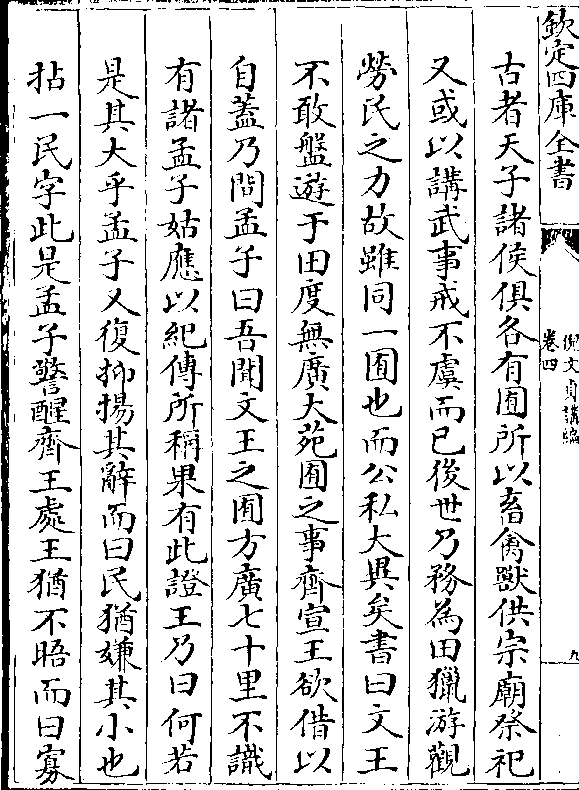 欽定四庫全書
倪文貞講編
卷四
九
古者天子諸侯俱各有囿所以畜禽獸供宗廟祭祀
又或以講武事戒不虞而已後世乃務為田獵游觀
勞民之力故雖同一囿也而公私大異矣書曰文王
不敢盤遊于田度無廣大苑囿之事齊宣王欲借以
自蓋乃問孟子曰吾聞文王之囿方廣七十里不識
有諸孟子姑應以紀傳所稱果有此證王乃曰何若
是其大乎孟子又復抑揚其辭而曰民猶嫌其小也
拈一民字此是孟子警醒齊王處王猶不晤而曰寡